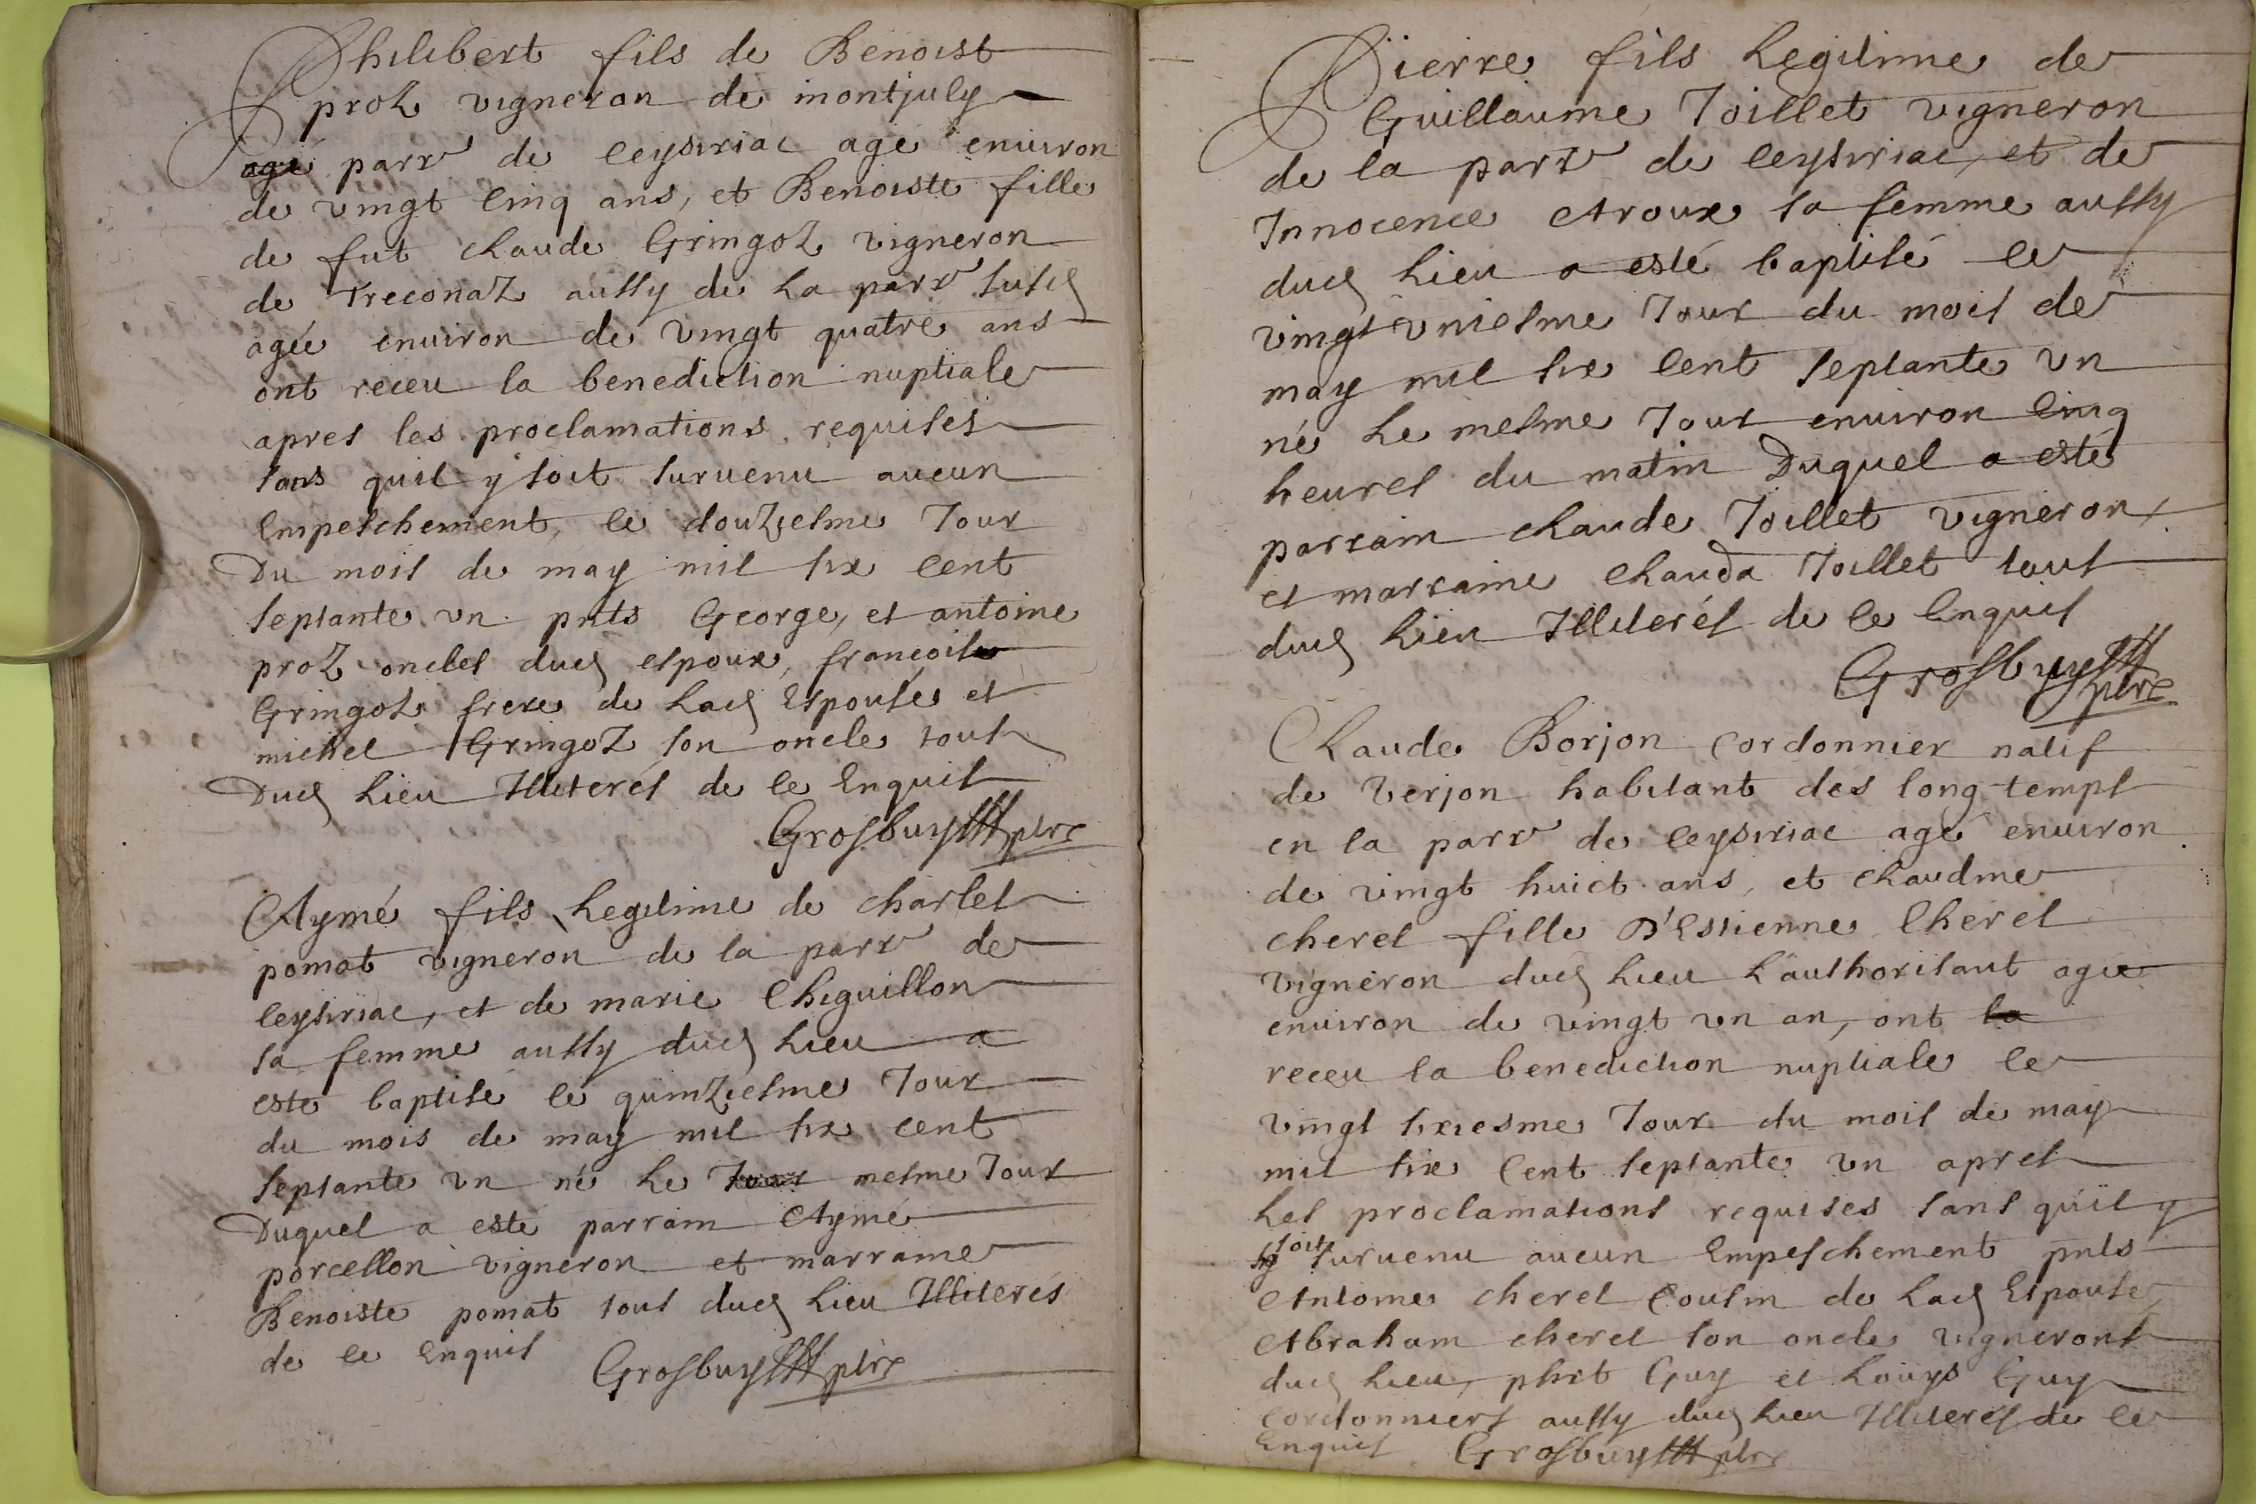 Philibert fils de Benoist
proz vigneron de montjuly
agé parr de ceysiriac agé environ
de vingt cinq ans, et Benoiste fille
de fut claude Gringoz vigneron
de Treconaz aussy de la parr susd
agée environ de vingt quatre ans
ont receu la benediction nuptiale
apres les proclamations requises
sans quil y soit survenu aucun
Empeschement, le douziesme Jour
Du mois de may mil six cent
septante vn pnts George, et antoine
proz oncles dud espoux, françois
Gringoz frere de lad Espouse et
michel Gringoz son oncle tous
Dud lieu Illiterés de ce Enquis
Grosbuy ptre
Aymé fils Legitime de charles
pomat vigneron de la parr de
ceysiriac, et de marie Chiguillon
sa femme aussy dud lieu a
esté baptisé le quinziesme Jour
du mois de may mil six cent
septante vn né le Jour mesme Jour
Duquel a esté parrain Aymé
porcellon vigneron et marraine
Benoiste pomat tous dud lieu Illiterés
de ce Enquis Grosbuy ptre
Pierre fils Legitime de
Guillaume Joillet vigneron
de la parr de ceysiriac, et de
Innocence Aroux sa femme aussy
dud lieu a esté baptisé le
vingt vniesme Jour du mois de
may mil six cent septante vn
né le mesme Jour environ cinq
heures du matin Duquel a esté
parrain claude Joillet vigneron
et marraine clauda Joillet tous
dud lieu Illiterés de ce Enquis
Grosbuy ptre
Claude Borjon cordonnier natif
de verjon habitant des long-temps
en la parr de ceysiriac agé environ
de vingt huict ans, et claudine
cherel fille D'Estienne Cherel
vigneron dud lieu L'authorisant agée
environ de vingt vn an, ont la
receu la benediction nuptiale le
vingt sixiesme Jour du mois de may
mil six cent septante vn apres
les proclamations requises sans qu'il y
soit survenu aucun Empeschement pnts
Antoine cherel Cousin de lad Espouse
Abraham cherel son oncle vignerons
dud lieu, phit Guy et Louys Guy
cordonniers aussy dud lieu Illiterés de ce
Enquis Grosbuy ptre